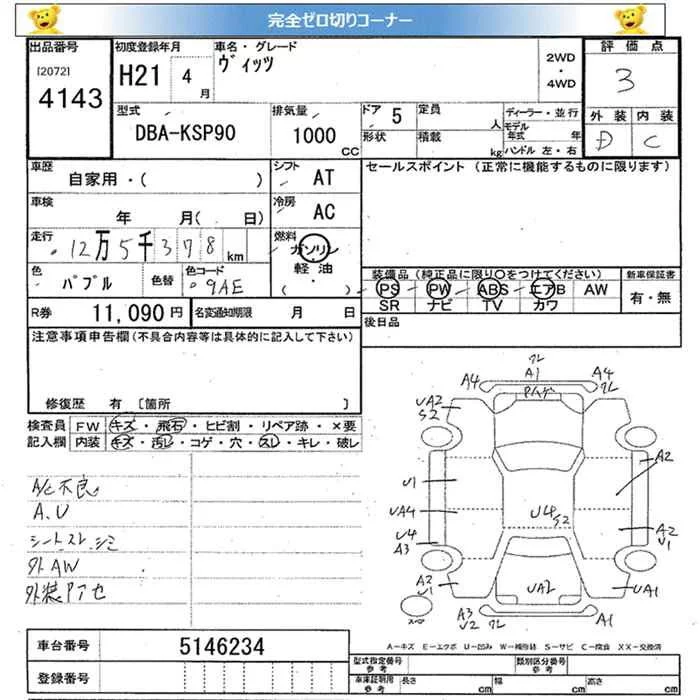 完全ゼロ切りコーナー
出品番号 初度登録年月 車名・グレード 評価点
[2072] H21 4月 ヴィッツ 2WD・4WD 3
4143
型式 排気量 ドア 5 定員 人 ディーラー・並行 外装 内装
DBA-KSP90 1000 CC 形状 積載 kg モデル年式 年 D C
ハンドル 左・右
車歴 シフト セールスポイント (正常に機能するものに限ります)
自家用・( ) AT
車検 冷房
年 月( 日) AC
走行 燃料
12万5千378km ガソリン
軽油
色 色替 色コード ( ) 装備品 (純正品に限り○をつけてください) 新車保証書
パープル 9AE PS PW ABS エアB AW 有・無
SR ナビ TV カワ
R券 11,090円 名変通知期限 月 日 後日品
注意事項申告欄 (不具合内容等は具体的に記入して下さい)
修復歴 有 〔箇所 〕
検査員 FW キズ・飛石・ヒビ割・リペア跡・×要
記入欄 内装 キズ・汚レ・コゲ・穴・スレ・キレ・破レ
A/C不良
A.U
シートスレ シミ
外AW
外装PTセ
クレ
A4 A1 A4 クレ
UA2 S2
U1 A2
UA4 U4 S2
U4 A3 A2 U1
A2 U1 UA2 UA1
A3 U2 クレ A1
A-キズ E-エクボ U-凹み W-補修跡 S-サビ C-腐食 XX-交換済
車台番号 5146234
登録番号
型式指定番号 参考 類別区分番号 参考
車庫証明用 参考 長さ cm 幅 cm 高さ cm